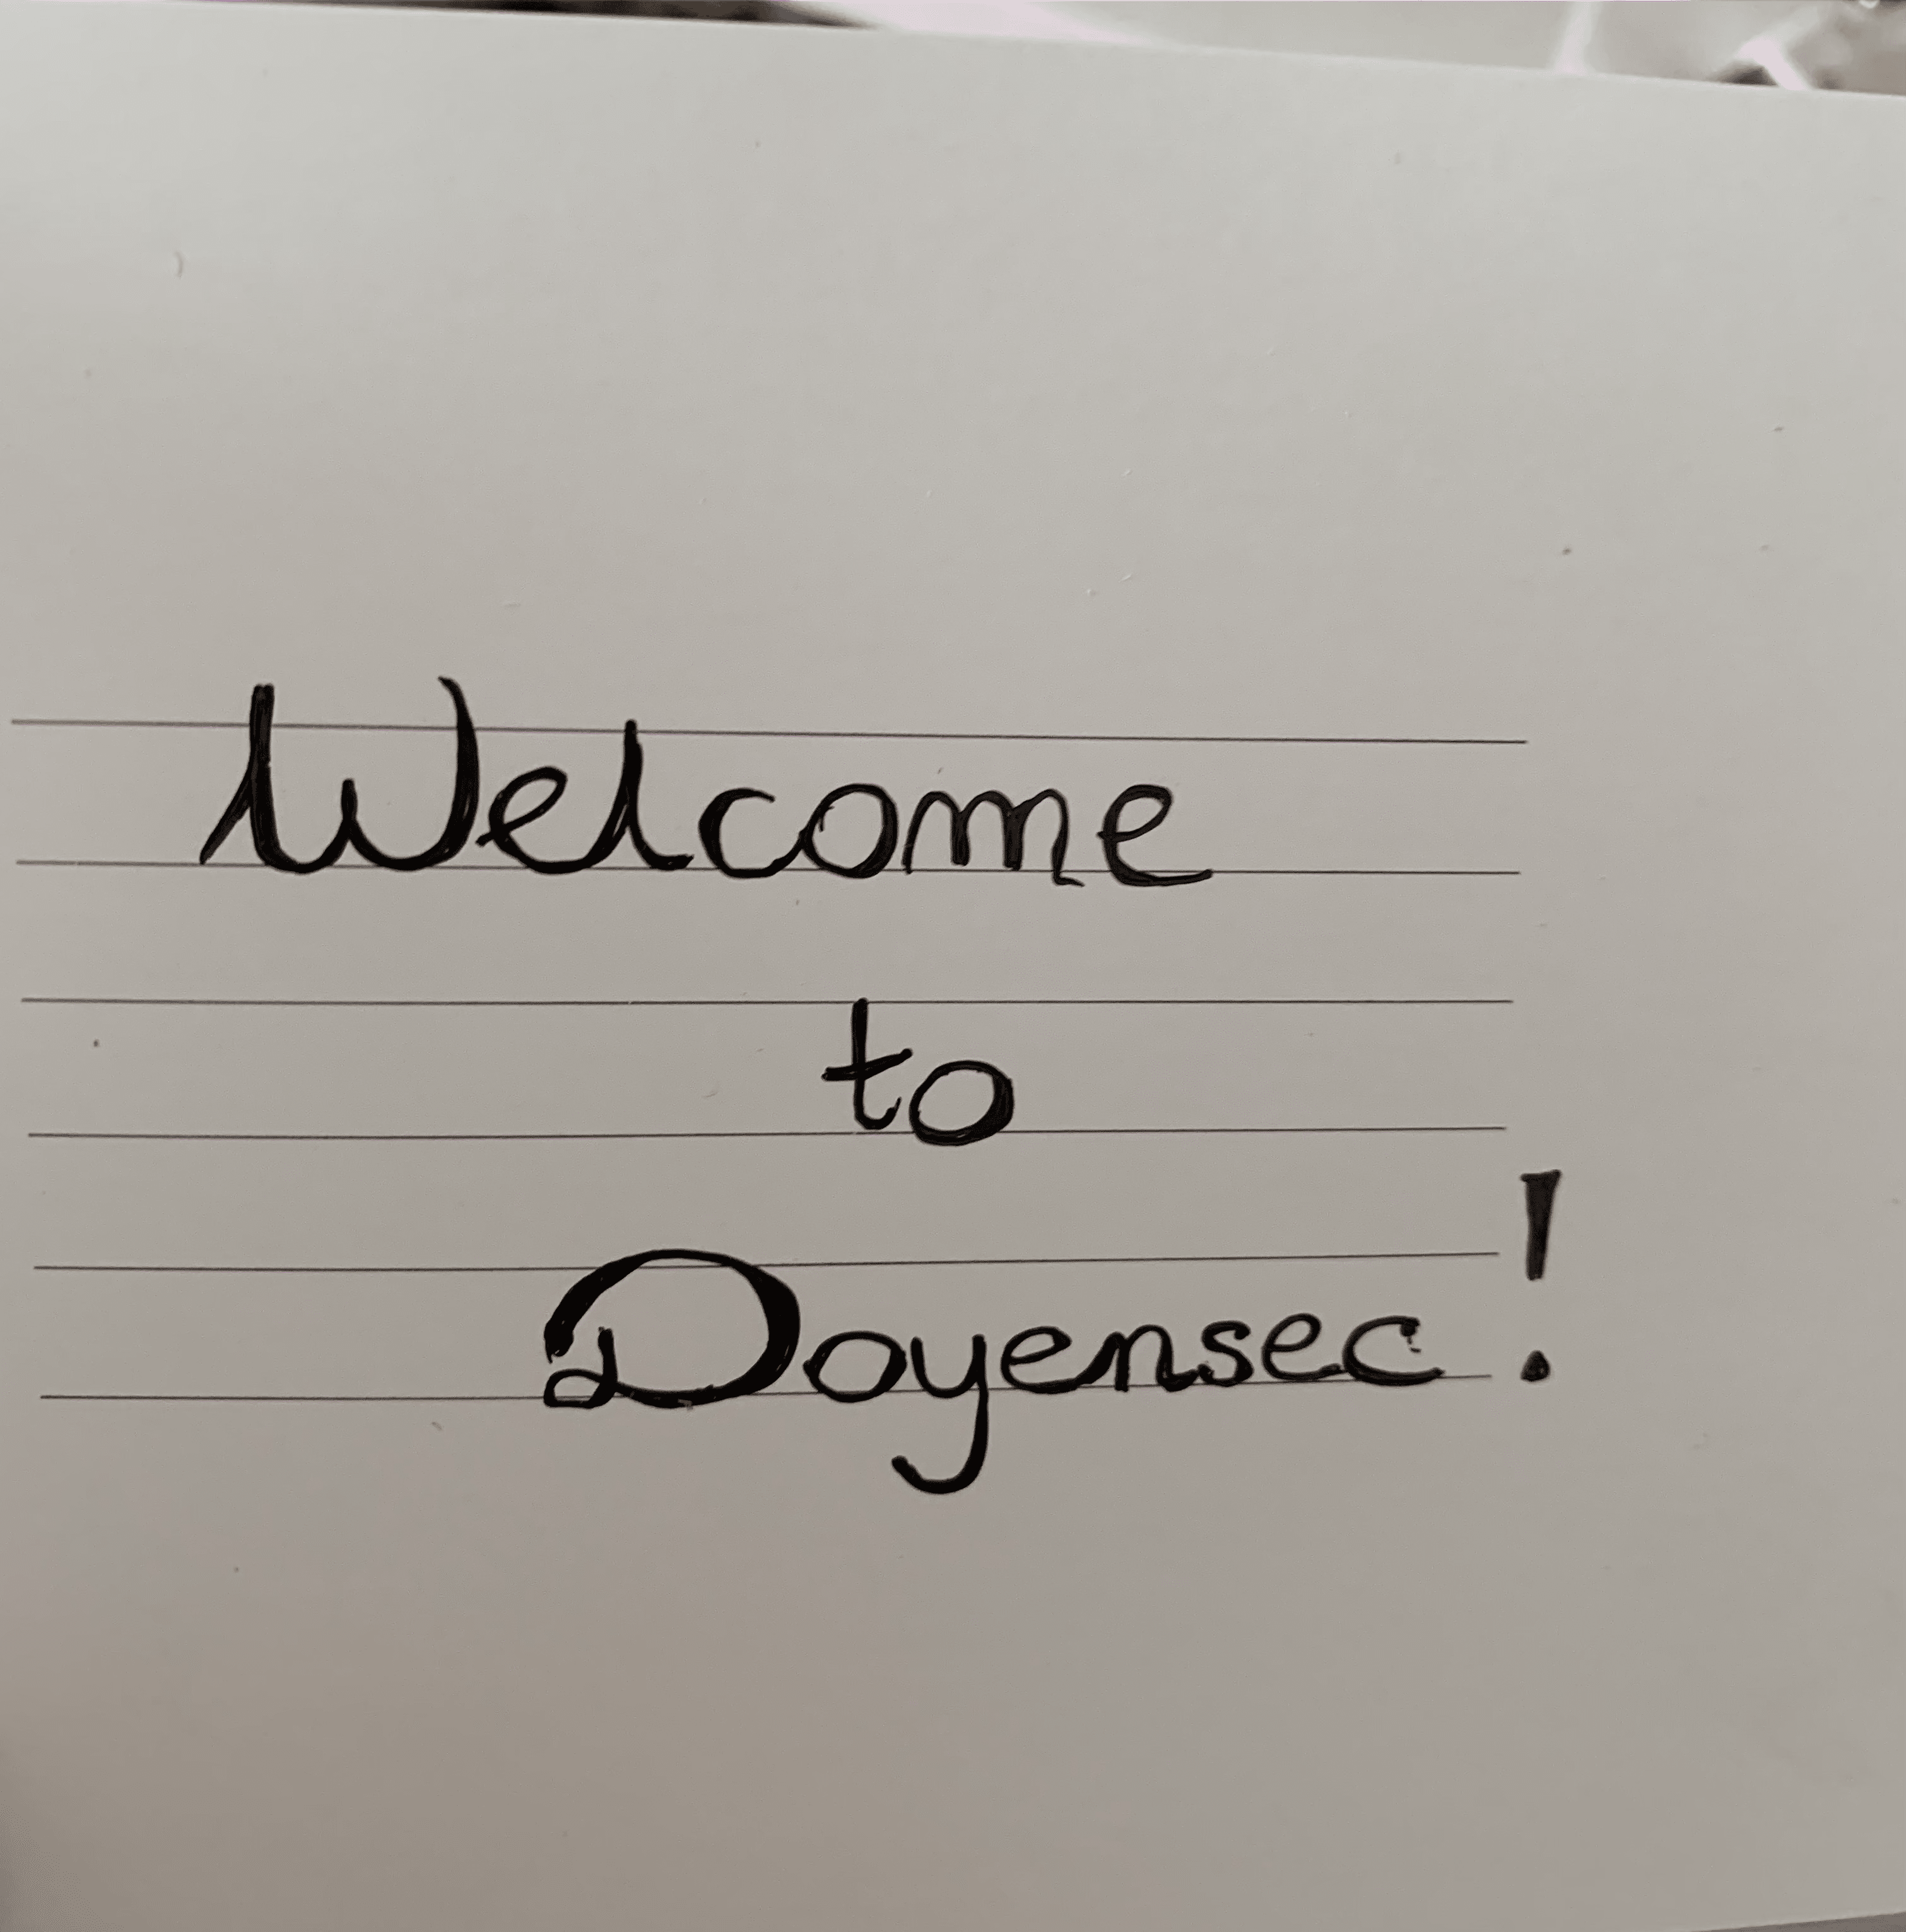 Welcome
to
Doyensec!